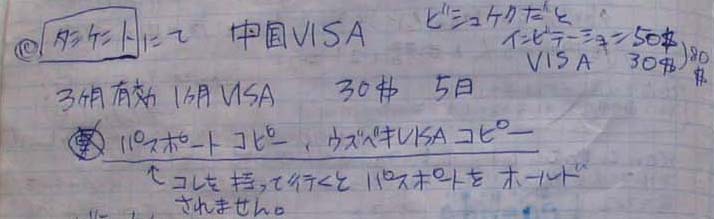 © タシケントにて 中国VISA ビシュケクだと
インビテーション 50$
VISA 30$ )80$
3ヶ月有効 1ヶ月VISA 30$ 5日
パスポートコピー、ウズベキVISAコピー
↑コレを持って行くとパスポートをホールド
されません。